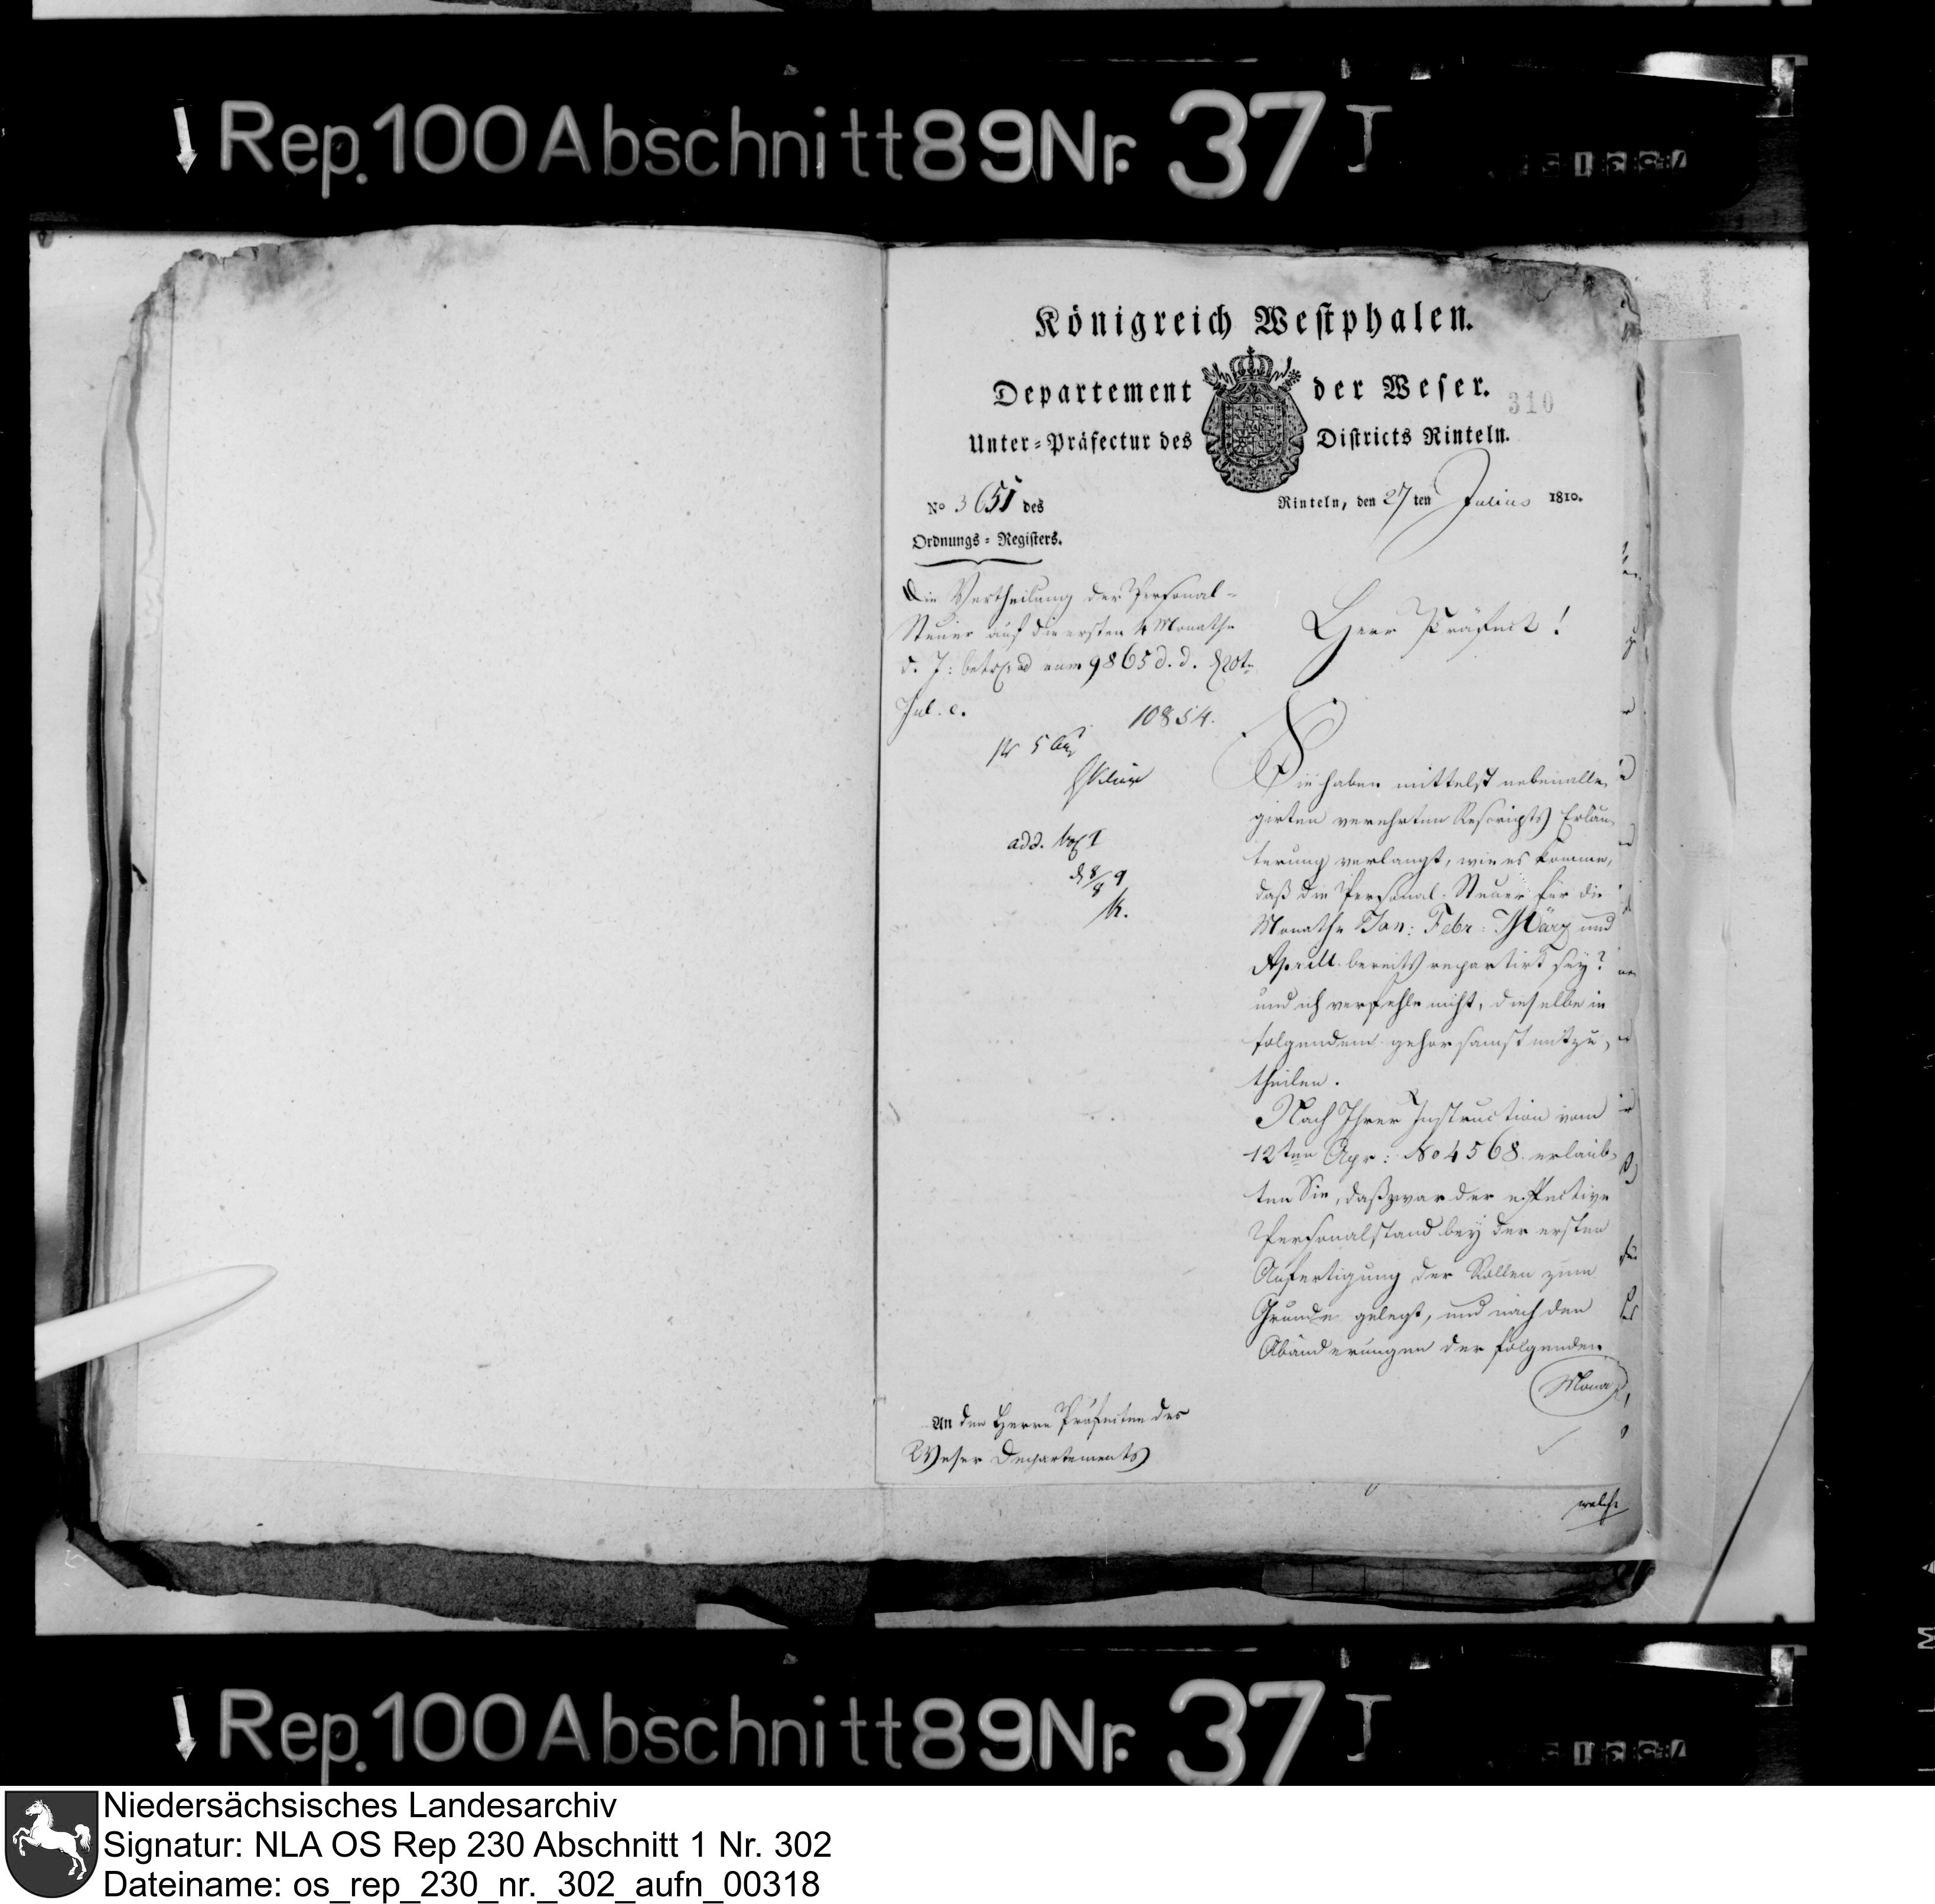 Rep. 100 Abschnitt 89 Nr. 37 I
Königreich Westphalen.
Departement der Weser.
310
Unter-Präfectur des Districts Rinteln.
No 3651 des
Rinteln, den 27 ten Julius 1810.
Ordnungs-Registers.
Die Vertheilung der Personal-
Steuer auf die ersten 4 Monathe
d. J: betr. ad vom 9865 d. d.
Jul. c.
10854.
Herr Präfect!
Sie haben mittelst nebenalle-
girten verehrten Rescripts Erläu-
terung verlangt, wie es komme,
daß die Personal-Steuer für die
Monathe Jan: Febr: März und
Aprill bereits repartirt sey?
und ich verfehle nicht, dieselbe in
folgendem gehorsamst mitzu-
theilen.
Nach Ihrer Instruction vom
12ten Apr: No 4568. erlaub-
ten Sie, daß zwar der effective
Personalstand bey der ersten
Anfertigung der Rollen zum
Grunde gelegt, und nach den
Abänderungen der folgenden
Mona
An den Herrn Präfecten des
Weser Departements
welche
Rep. 100 Abschnitt 89 Nr. 37 I
Niedersächsisches Landesarchiv
Signatur: NLA OS Rep 230 Abschnitt 1 Nr. 302
Dateiname: os_rep_230_nr._302_aufn_00318